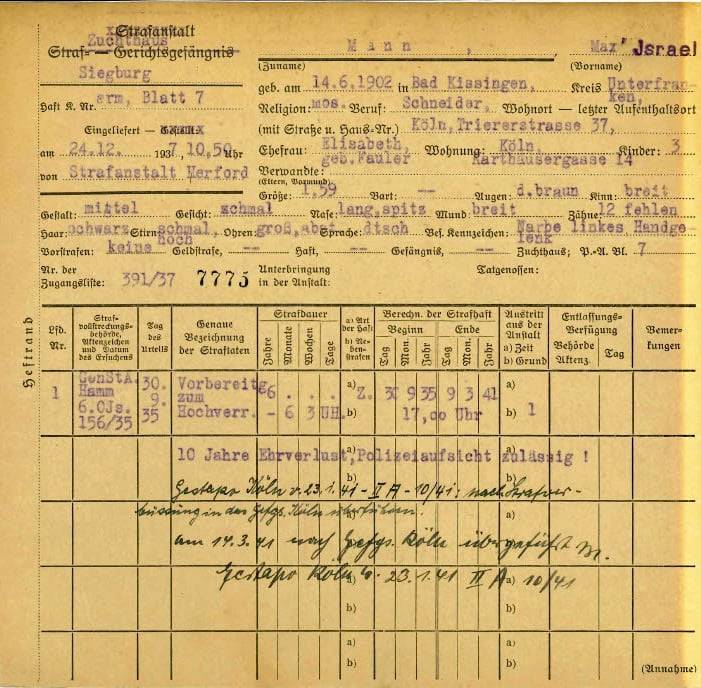 Strafanstalt
Zuchthaus
Straf- — Gerichtsgefängnis
Siegburg
Haft K. Nr. arm, Blatt 7
Eingeliefert —
am 24.12. 1937 10,50 Uhr
von Strafanstalt Herford
Mann, Max Jsrael
(Zuname) (Vorname)
geb. am 14.6.1902 in Bad Kissingen, Kreis Unterfran-
ken,
Religion: mos. Beruf: Schneider, Wohnort — letzter Aufenthaltsort
(mit Straße u. Haus-Nr.) Köln, Triererstrasse 37,
Ehefrau: Elisabeth, Wohnung: Köln, Kinder: 3
geb. Fauler Karthäusergasse 14
Verwandte:
(Eltern, Vormund)
Größe: 1,59 Bart: -- Augen: d.braun Kinn: breit
Gestalt: mittel Gesicht: schmal Nase: lang, spitz Mund: breit Zähne: 12 fehlen
Haar: schwarz Stirn: schmal, hoch Ohren: groß, abst Sprache: dtsch Bes. Kennzeichen: Narbe linkes Handge
lenk
Vorstrafen: keine Geldstrafe, -- Haft, -- Gefängnis, -- Zuchthaus; P.-A. Bl. 7
Nr. der Zugangsliste: 391/37 7775 Unterbringung in der Anstalt: Tatgenossen:
Heftrand
Lfd. Nr.
Straf-vollstreckungs-behörde, Aktenzeichen und Datum des Ersuchens
Tag des Urteils
Genaue Bezeichnung der Straftaten
Strafdauer
Jahre Monate Wochen Tage
a) Art der Haft
b) Nebenstrafen
Berechn. der Strafhaft
Beginn Ende
Tag Mon. Jahr Tag Mon. Jahr
Austritt aus der Anstalt
a) Zeit
b) Grund
Entlassungs-Verfügung
Behörde Aktenz. Tag
Bemerkungen
1 GenStA. 30. Vorbereitg 6 . . . a) Z. 30 9 35 9 3 41 a)
Hamm 9. zum
6.OJs. 35 Hochverr. - 6 3 UH. b) 17,00 Uhr b) 1
156/35
10 Jahre Ehrverlust, Polizeiaufsicht zulässig !
Gestapo Köln v. 23.1.41 - II A - 10/41: nach Strafver-
büssung in das Gefgs. Köln überführen!
am 14.3.41 nach Gefgs. Köln übergeführt
Gestapo Köln v. 23.1.41 II A 10/41
a)
b)
a)
b)
(Annahme)